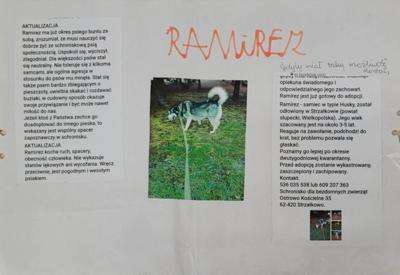 AKTUALIZACJA
Ramirez ma już okres psiego buntu za
sobą, zrozumiał, że musi nauczyć się
dobrze żyć ze schroniskową psią
społecznością. Uspokoił się, wyciszył,
złagodniał. Dla większości psów stał
się neutralny. Nie toleruje się z kilkoma
samcami, ale ogólna agresja w
stosunku do psów mu minęła. Stał się
także psem bardzo zbiegającym o
pieszczoty, uwielbia skakać i rozdawać
buziaki, w cudowny sposób okazuje
swoje przywiązanie i być może nawet
miłość do nas.
Jeżeli ktoś z Państwa zechce go
doadoptować do innego pieska, to
wskazany jest wspólny spacer
zapoznawczy w schronisku.
AKTUALIZACJA
Ramirez kocha ruch, spacery,
obecność człowieka. Nie wykazuje
stanów lękowych ani wycofania. Wręcz
przeciwnie, jest pogodnym i wesołym
psiakiem.
RAMiREZ
gdyby miał taką możliwość
opiekuna świadomego i
odpowiedzialnego jego zachowań.
Ramirez jest już gotowy do adopcji.
Ramirez - samiec w typie Husky, został
odłowiony w Strzałkowie (powiat
słupecki, Wielkopolska). Jego wiek
szacowany jest na około 3-5 lat.
Reaguje na zawołanie, podchodzi do
krat, bez problemu pozwala się
głaskać.
Poznamy go lepiej po okresie
dwutygodniowej kwarantanny.
Przed adopcją zostanie wykastrowany,
zaszczepiony i zachipowany.
Kontakt:
536 035 538 lub 609 207 363
Schronisko dla bezdomnych zwierząt
Ostrowo Kościelne 35
62-420 Strzałkowo.